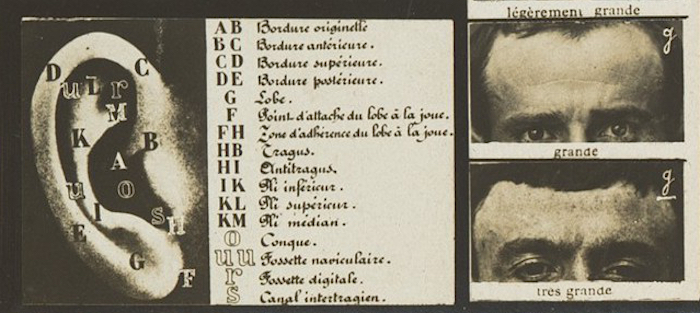 D
C
u
L
r
M
K
B
A
u
o
I
s
H
E
G
F
A B Bordure originelle
B C Bordure antérieure.
C D Bordure supérieure.
D E Bordure postérieure.
G Lobe.
F Point d'attache du lobe à la joue.
F H Zone d'adhérence du lobe à la joue.
H B Tragus.
H I Antitragus.
I K Pli inférieur.
K L Pli supérieur.
K M Pli médian.
o Conque.
u u Fossette naviculaire.
r Fossette digitale.
s Canal intertragien.
légèrement grande
g
grande
g
très grande